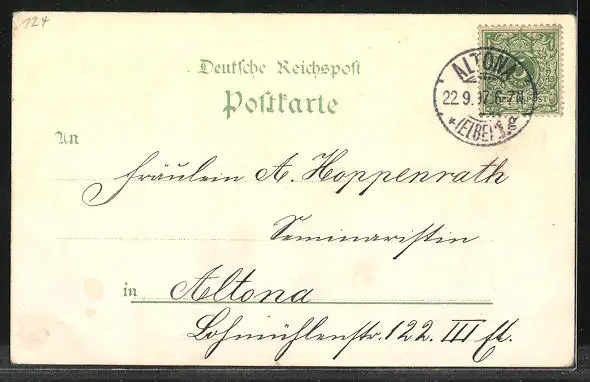 124
Deutsche Reichspost
Postkarte
ALTONA
22.9.97.6-7N
*(ELBE)1
REICHSPOST
An
Fräulein A. Hoppenrath
Seminaristin
in Altona
Lohmühlenstr. 122. III Et.